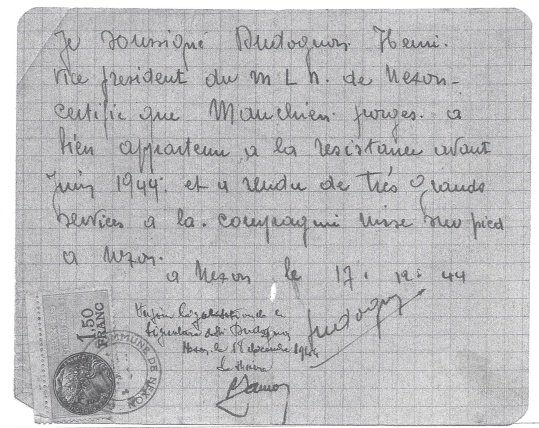 Je soussigné Dudognon Henri.
vice president du M L N. de Nexon -
certifie que Manchien georges. a
bien appartenu a la resistance avant
Juin 1944. et a rendu de trés grands
services a la. compagnie mise sur pied
a Nexon.
a Nexon le 17. 12. 44
Dudognon
Vu pour légalisation de la
signature de Mr Dudognon
Nexon, le 18 décembre 1944
Le Maire
1,50
FRANC
COMMUNE DE NEXON